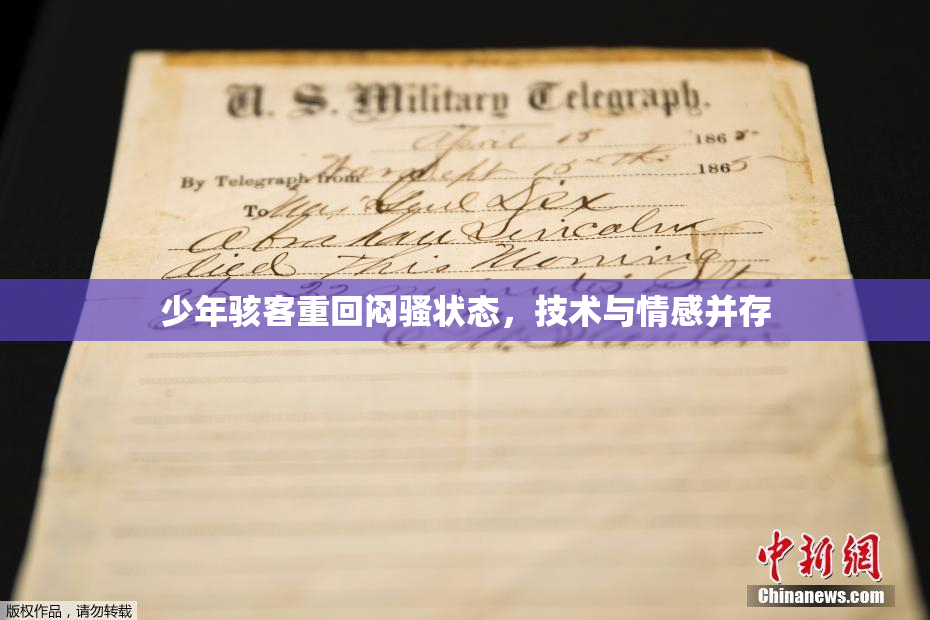 U. S. Military Telegraph.
April 15 1865
By Telegraph from War Dept 15th 1865
To Maj Genl Dix
Abraham Lincoln
died This Morning
at 22 minutes after
少年骇客重回闷骚状态，技术与情感并存
E. M. Stanton
中新网
Chinanews.com
版权作品，请勿转载